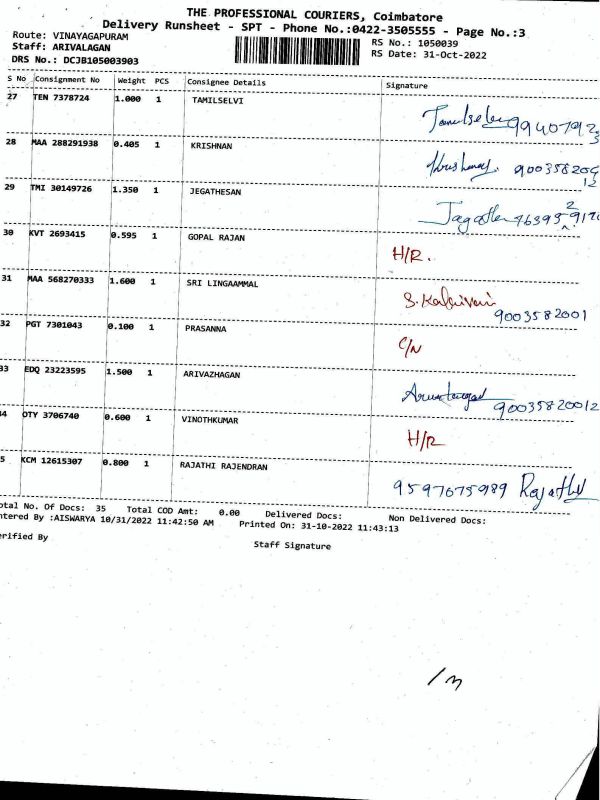 THE PROFESSIONAL COURIERS, Coimbatore
Delivery Runsheet - SPT - Phone No.:0422-3505555 - Page No.:3
Route: VINAYAGAPURAM
Staff: ARIVALAGAN
DRS No.: DCJB105003903
RS No.: 1050039
RS Date: 31-Oct-2022
S No Consignment No Weight PCS Consignee Details Signature
27 TEN 7378724 1.000 1 TAMILSELVI
28 MAA 288291938 0.405 1 KRISHNAN
29 TMI 30149726 1.350 1 JEGATHESAN
30 KVT 2693415 0.595 1 GOPAL RAJAN H/R.
31 MAA 568270333 1.600 1 SRI LINGAAMMAL 9003582001
32 PGT 7301043 0.100 1 PRASANNA C/N
33 EDQ 23223595 1.500 1 ARIVAZHAGAN 90035820012
34 OTY 3706740 0.600 1 VINOTHKUMAR H/R
5 KCM 12615307 0.800 1 RAJATHI RAJENDRAN 9597675989
otal No. Of Docs: 35 Total COD Amt: 0.00 Delivered Docs: Non Delivered Docs:
ntered By :AISWARYA 10/31/2022 11:42:50 AM Printed On: 31-10-2022 11:43:13
erified By
Staff Signature